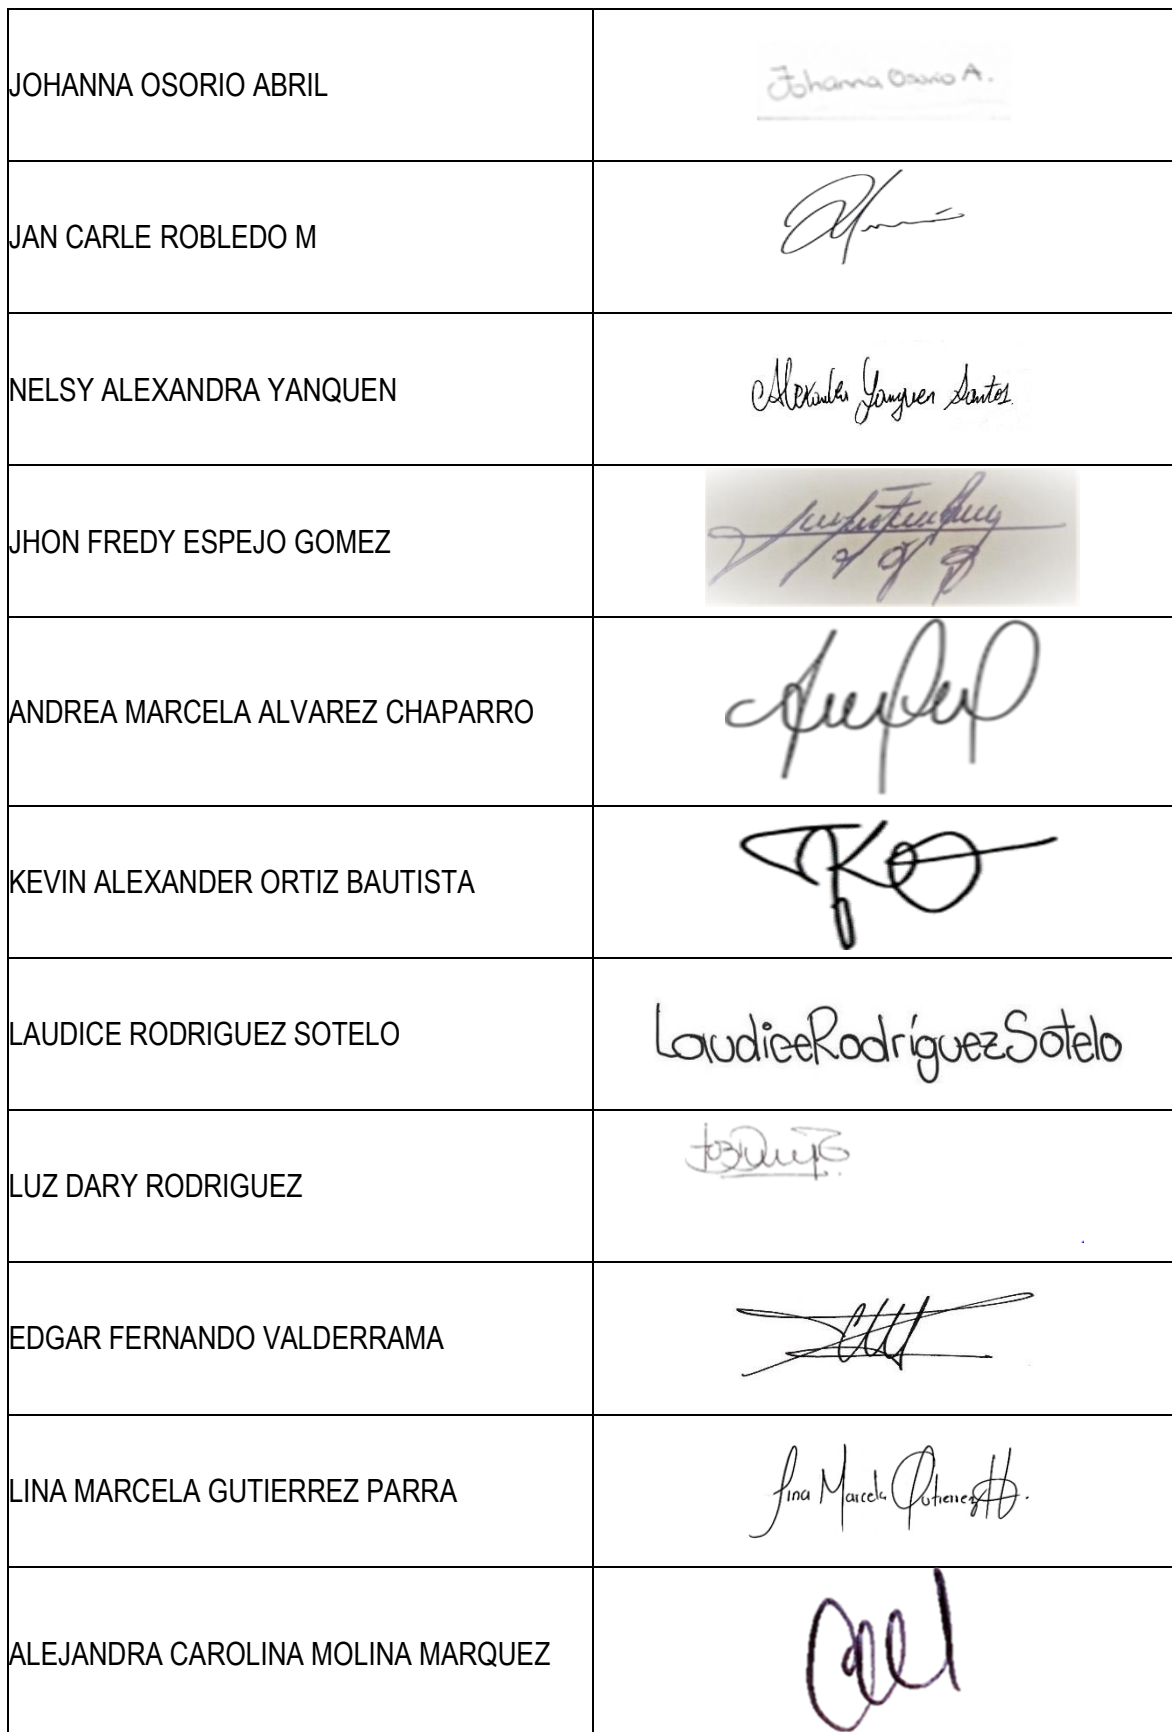 JOHANNA OSORIO ABRIL
Johanna Osorio A.
JAN CARLE ROBLEDO M
NELSY ALEXANDRA YANQUEN
Alexandra Yanquen Santos.
JHON FREDY ESPEJO GOMEZ
ANDREA MARCELA ALVAREZ CHAPARRO
KEVIN ALEXANDER ORTIZ BAUTISTA
LAUDICE RODRIGUEZ SOTELO
LaudiceRodríguezSotelo
LUZ DARY RODRIGUEZ
EDGAR FERNANDO VALDERRAMA
LINA MARCELA GUTIERREZ PARRA
Lina Marcela Gutierrez
ALEJANDRA CAROLINA MOLINA MARQUEZ